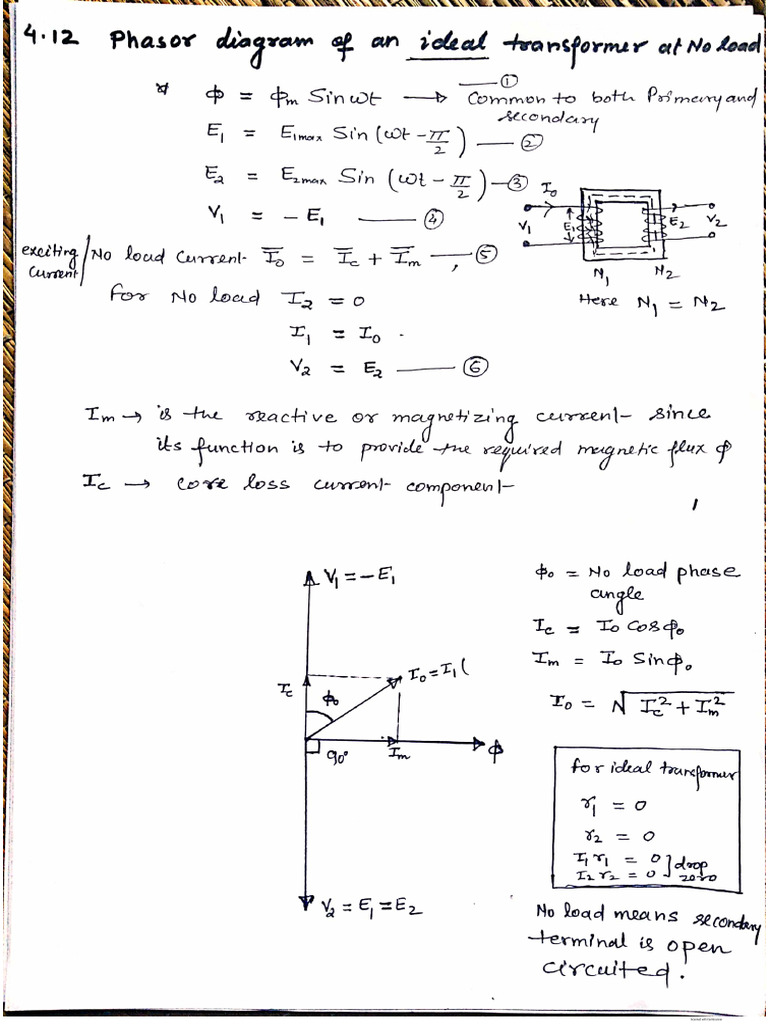 4.12 Phasor diagram of an ideal transformer at No load
* ϕ = ϕm Sin ωt → Common to both Primary and secondary —①
E1 = E1max Sin (ωt - π/2) —②
E2 = E2max Sin (ωt - π/2) —③
V1 = - E1 —④
exciting current / No load current I̅0 = I̅c + I̅m —⑤,
For No load I2 = 0
I1 = I0 .
V2 = E2 —⑥
I0
V1
E1
E2
V2
N1 N2
Here N1 = N2
Im → is the reactive or magnetizing current since
its function is to provide the required magnetic flux ϕ
Ic → core loss current component
V1 = - E1
Ic
ϕ0
I0 = I1 (
90°
Im
ϕ
V2 = E1 = E2
ϕ0 = No load phase
angle
Ic = I0 Cosϕ0
Im = I0 Sinϕ0
I0 = √(Ic² + Im²)
for ideal transformer
r1 = 0
r2 = 0
I1 r1 = 0 ] drop
I2 r2 = 0 ] zero
No load means secondary
terminal is open
circuited.